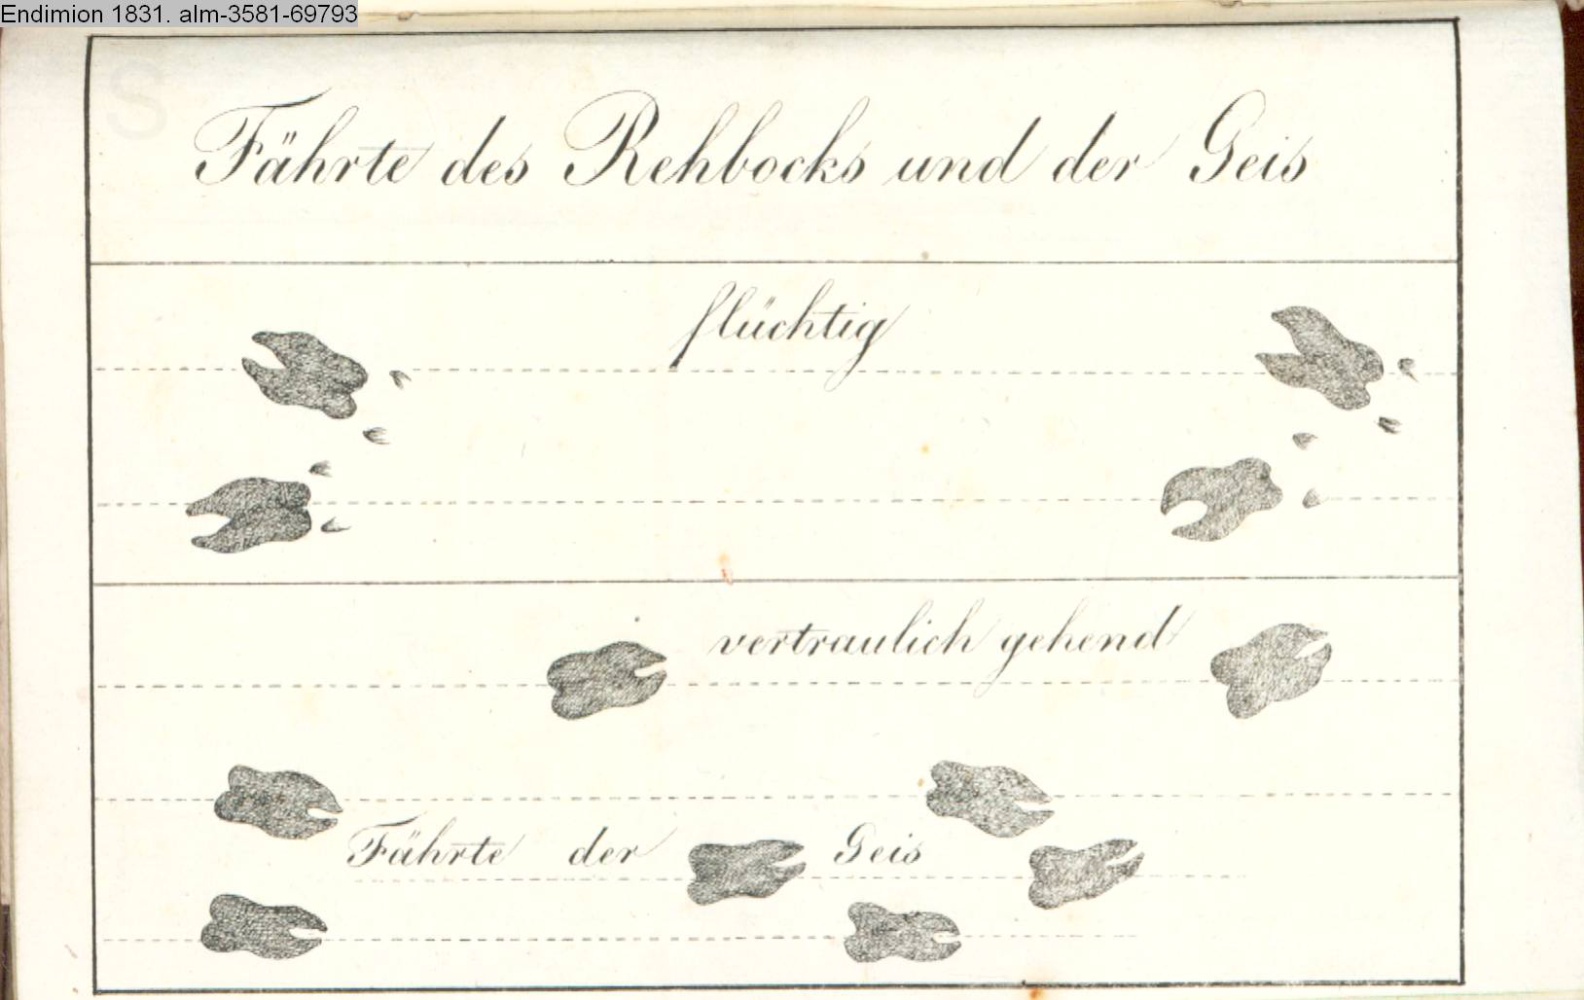 Endimion 1831. alm-3581-69793
Fährte des Rehbocks und der Geis
flüchtig
vertraulich gehend
Fährte der Geis